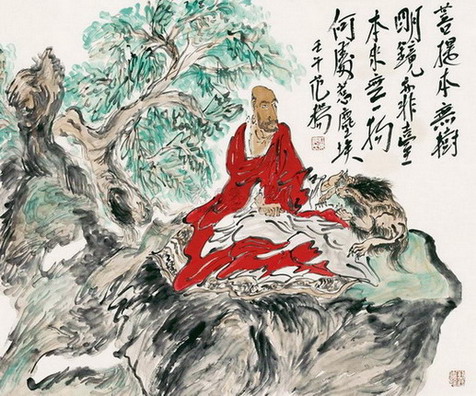 菩提本無樹
明鏡亦非臺
本來無一物
何處惹塵埃
壬午范揚